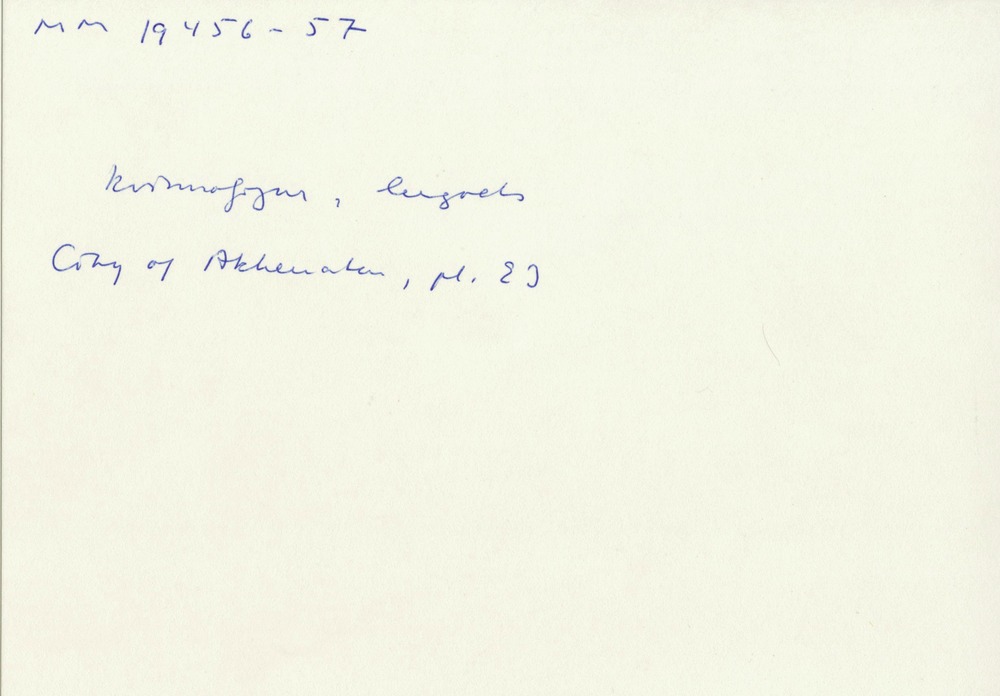 MM 19456-57
kvinnofigur, lergods
City of Akhenaten, pl. 23